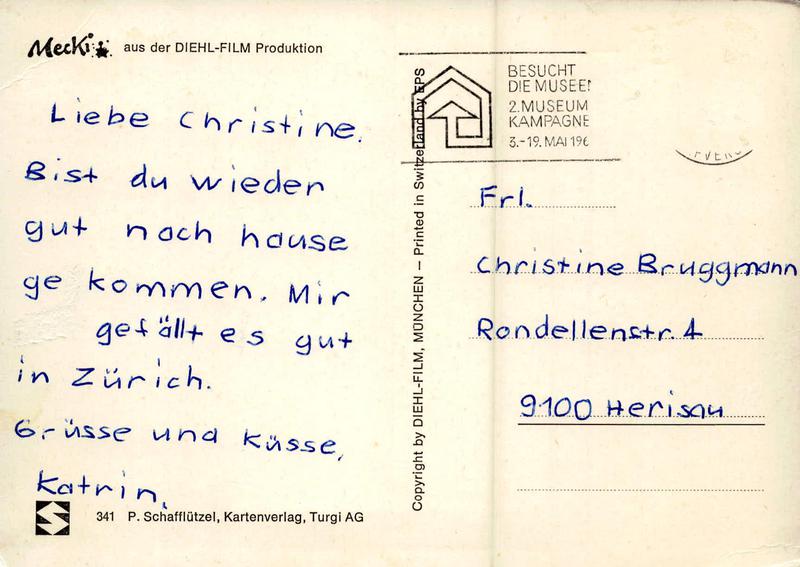 Mecki aus der DIEHL-FILM Produktion
Liebe Christine.
Bist du wieder
gut nach hause
ge kommen. Mir
gefällt es gut
in Zürich.
Grüsse und Küsse,
Katrin.
341 P. Schafflützel, Kartenverlag, Turgi AG
Copyright by DIEHL-FILM, MÜNCHEN – Printed in Switzerland by EPS
BESUCHT
DIE MUSEEN
2. MUSEUM
KAMPAGNE
3.-19. MAI 196
Frl.
Christine Bruggmann
Rondellenstr. 4
9100 Herisau